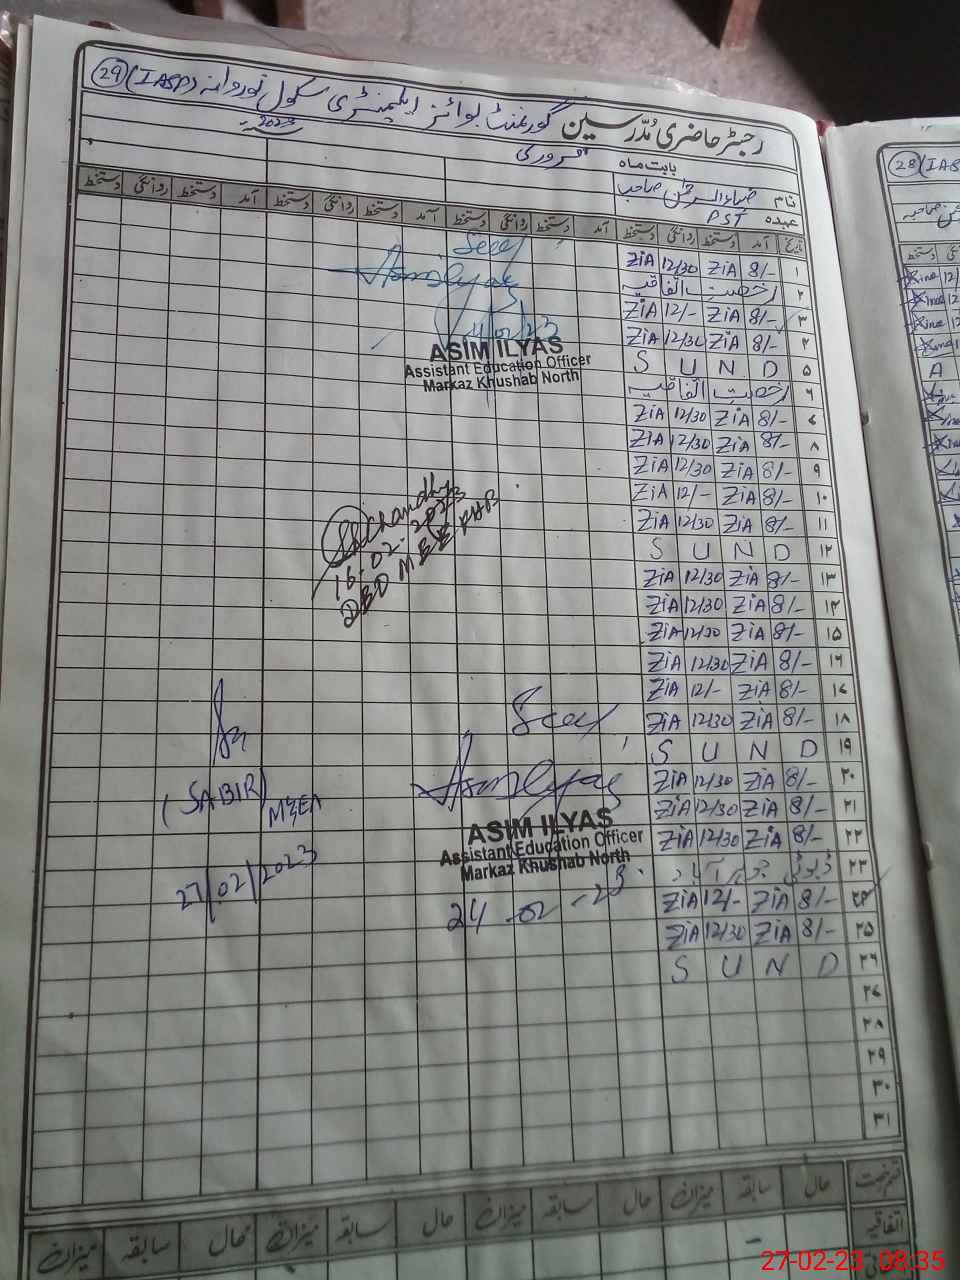 (29) گورنمنٹ بوائز ایلیمنٹری سکول نوروانہ (IASP)
رجسٹر حاضری مُدّرسین
بابت ماہ فروری سنہ 2023
نام ضیاء الرحمٰن صاحب
عہدہ PST
تاریخ آمد دستخط روانگی دستخط آمد دستخط روانگی دستخط آمد دستخط روانگی دستخط آمد دستخط روانگی دستخط
۱ 8/- ZiA 12/30 ZiA
۲ رخصت اتفاقیہ
۳ 8/- ZiA 12/- ZiA
۴ 8/- ZiA 12/30 ZiA
۵ S U N D
۶ رخصت اتفاقیہ
۷ 8/- ZiA 12/30 ZiA
۸ 8/- ZiA 12/30 ZiA
۹ 8/- ZiA 12/30 ZiA
۱۰ 8/- ZiA 12/- ZiA
۱۱ 8/- ZiA 12/30 ZiA
۱۲ S U N D
۱۳ 8/- ZiA 12/30 ZiA
۱۴ 8/- ZiA 12/30 ZiA
۱۵ 8/- ZiA 12/30 ZiA
۱۶ 8/- ZiA 12/30 ZiA
۱۷ 8/- ZiA 12/- ZiA
۱۸ 8/- ZiA 12/30 ZiA
۱۹ S U N D
۲۰ 8/- ZiA 12/30 ZiA
۲۱ 8/- ZiA 12/30 ZiA
۲۲ 8/- ZiA 12/30 ZiA
۲۳ ڈیوٹی
۲۴ 8/- ZiA 12/- ZiA
۲۵ 8/- ZiA 12/30 ZiA
۲۶ S U N D
۲۷
۲۸
۲۹
۳۰
۳۱
Seen
Asim Ilyas
14/02/23
ASIM ILYAS
Assistant Education Officer
Markaz Khushab North
Chandhry
16-02-2023
DEO MEE KHB
Seen
Asim Ilyas
ASIM ILYAS
Assistant Education Officer
Markaz Khushab North
24-02-23
(SABIR)
MEA
27/02/2023
قسم رخصت حال سابقہ میزان حال سابقہ میزان حال سابقہ میزان حال سابقہ میزان
اتفاقیہ
(28)
دستخط
A
27-02-23 08:35